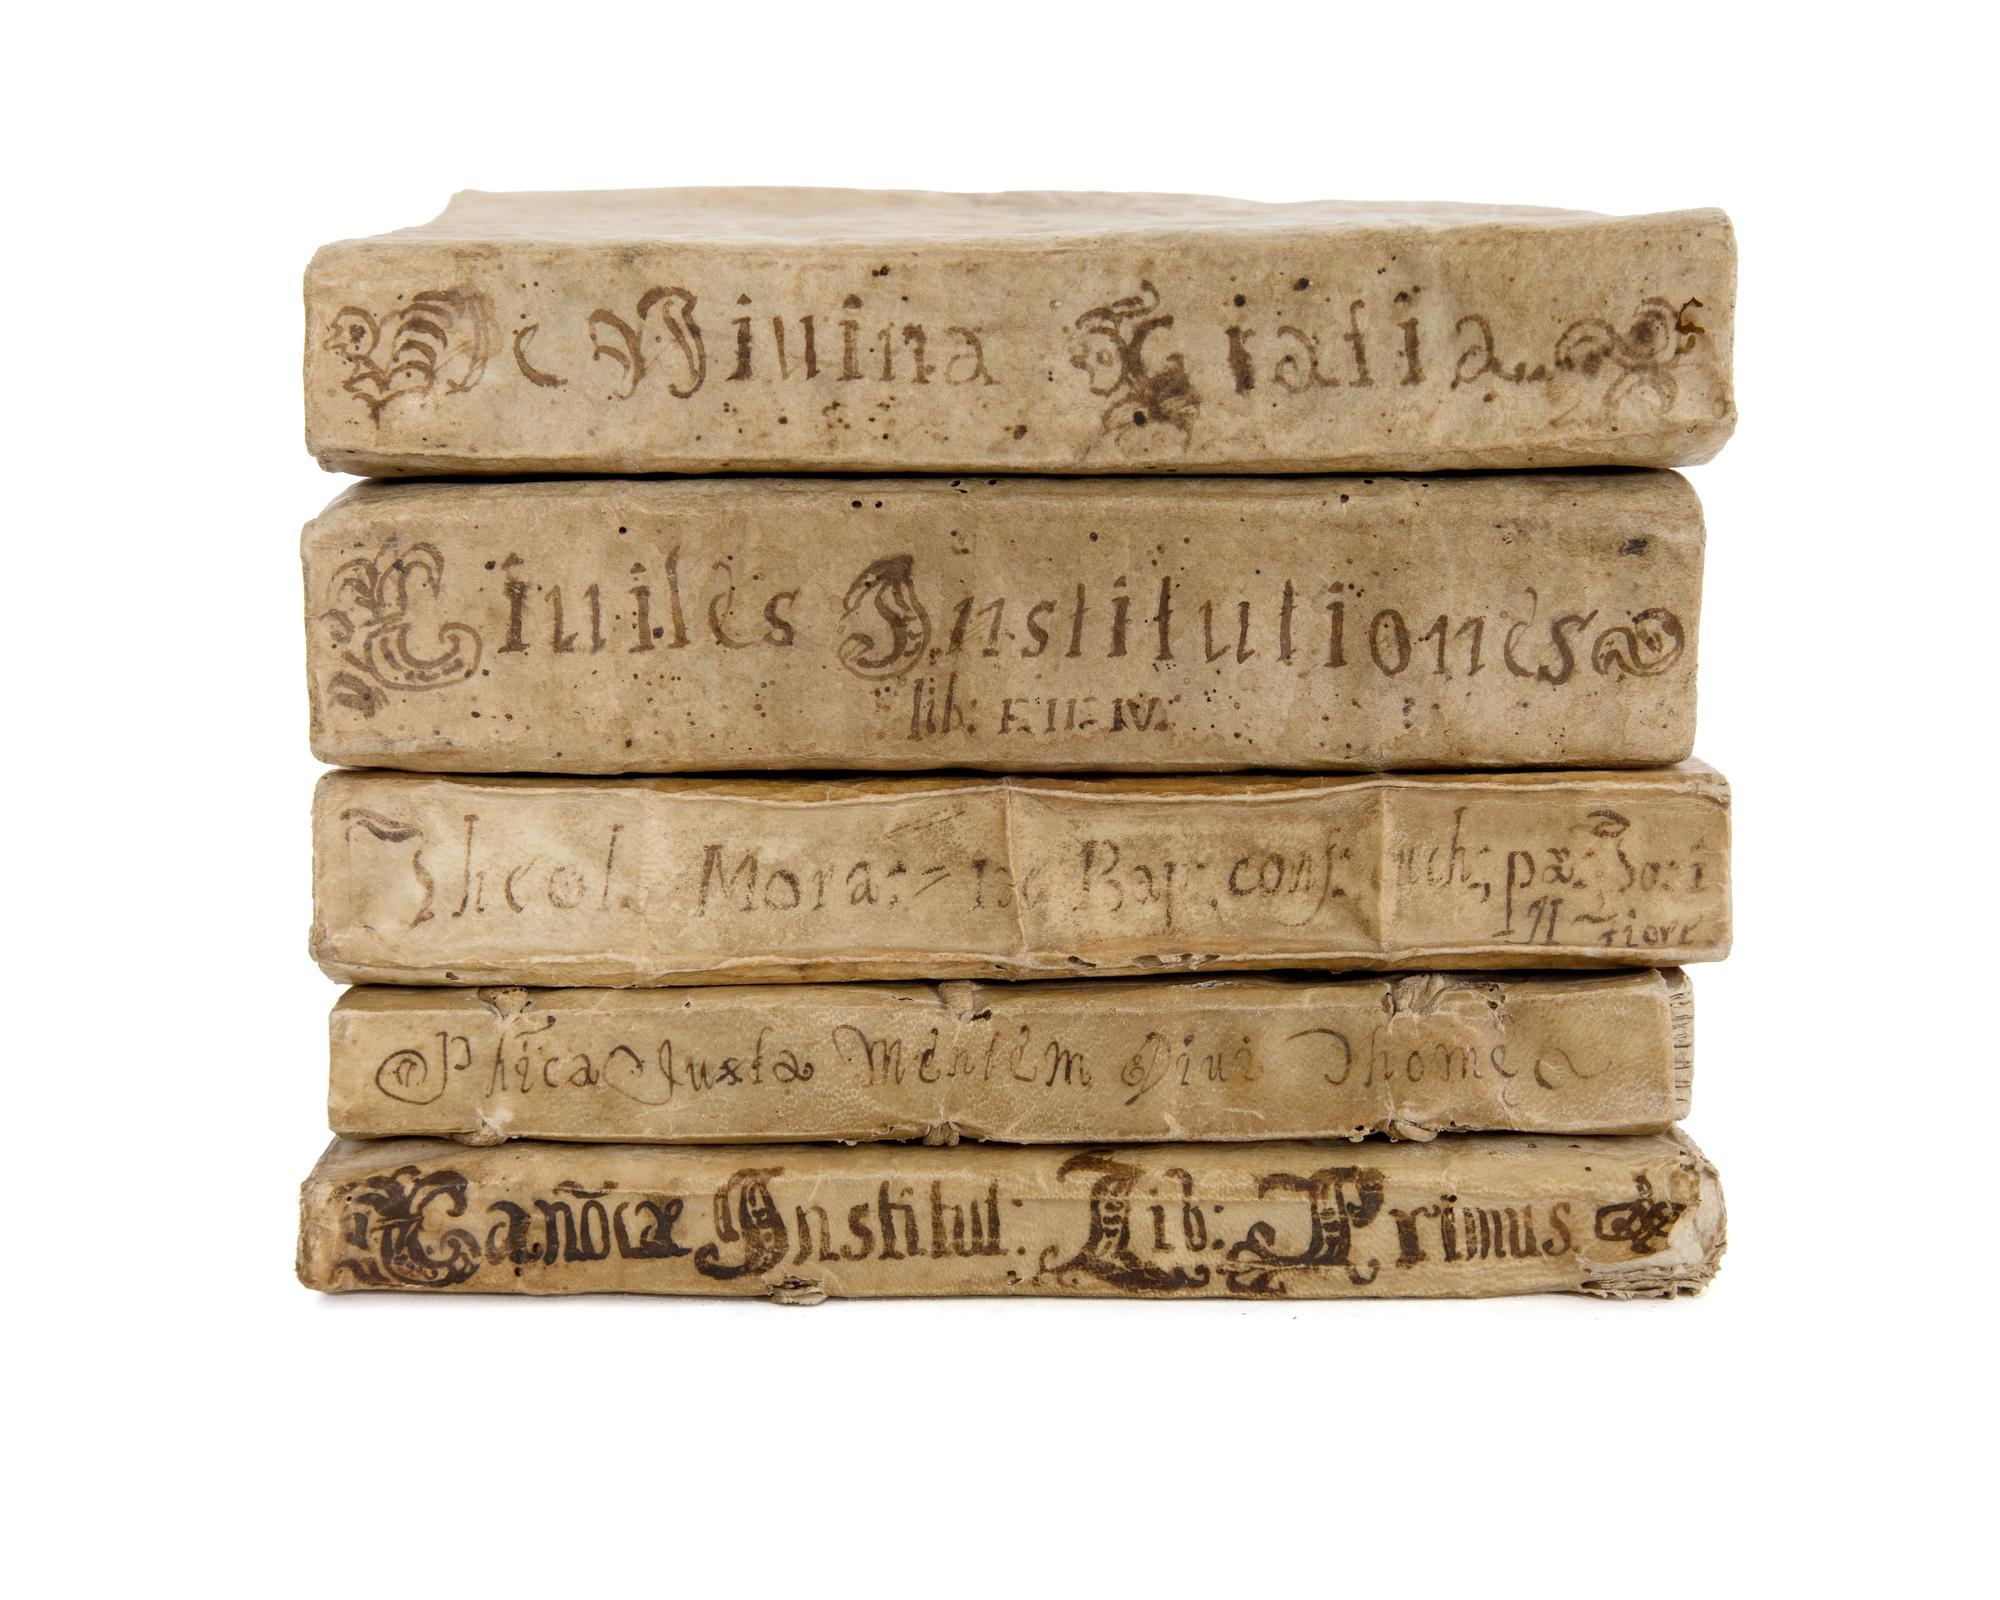 De Diuina Gratia
Ciuiles Institutiones
lib: I. II. IV.
Theol. Mora: = De Bap: conf: uch; pæ: Jo: i
Phĩca Juxta Mentem Diui Thomę
Canõcæ Institut: Lib: Primus